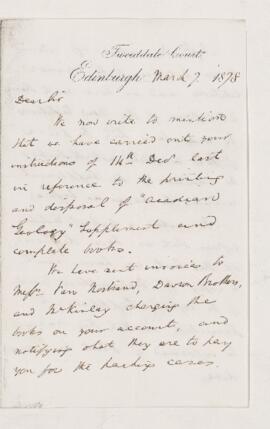 Tweeddale Court
Edinburgh March 7 1878
Dear Sir
We now write to mention
that we have carried out your
instructions of 14th Decr last
in reference to the printing
and disposal of "Acadian
Geology" Supplement and
complete books.
We have sent invoices to
Messrs Van Nostrand, Dawson Brothers,
and McKinlay charging the
books on your account, and
notifying what they are to pay
you for the packing cases.